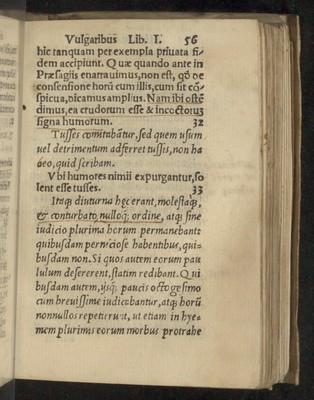 Vulgaribus Lib. I. 56
hic tanquam per exempla priuata fi-
dem accipiunt. Quæ quando ante in
Præsagiis enarrauimus, non est, qđ de
consensione horũ cum illis, cum sit cõ-
spicua, dicamus amplius. Nam ibi ostẽ
dimus, ea crudorum esse & incoctorũ
signa humorum. 32
Tusses comitabãtur, sed quem usum
uel detrimentum adferret tussis, non ha
beo, quid scribam.
Vbi humores nimii expurgantur, so
lent esse tusses. 33
Itaq; diuturna hęc erant, molestaq;,
& conturbato, nulloq; ordine, atq; sine
iudicio plurima horum permanebant
quibusdam perniciose habentibus, qui-
busdam non. Si quos autem eorum pau
lulum desererent, statim redibant. Qui
busdam autem, ijsq; paucis octogesimo
cum breuissime iudicabantur, atq; horũ
nonnullos repetierunt, ut etiam in hye-
mem plurimis eorum morbus protrahe